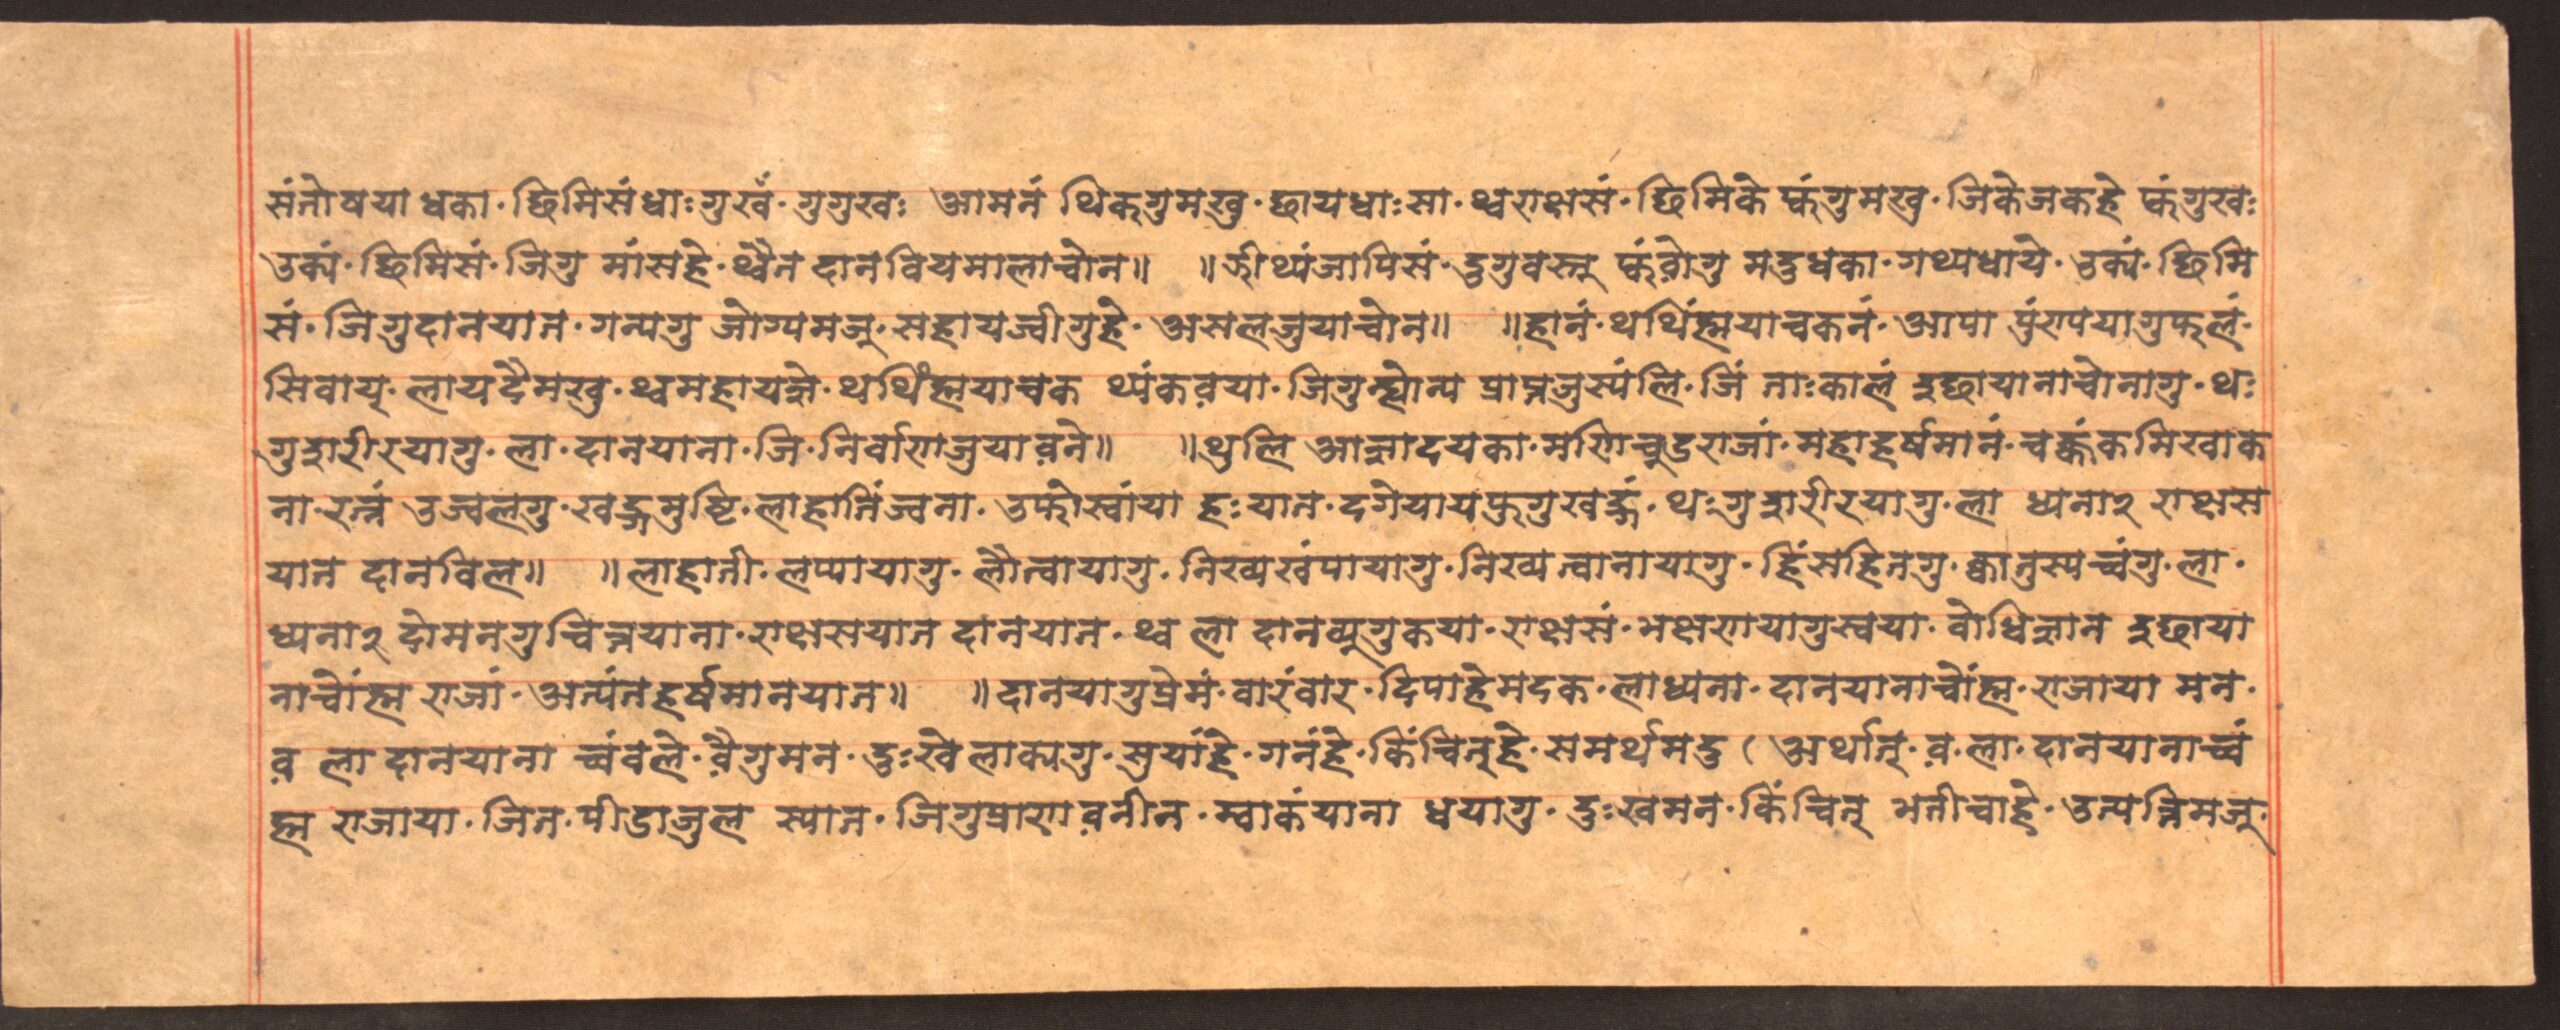 संतोषया धका· छिमिसंधाःगुखँ· गुगुखः आमनं थिक्गुमखु· छायधाःसा· थ्वराक्षसं· छिमिके फ्वंगुमखु· जिकेजकहे फ्वंगुखः
उक्यं· छिमिसं· जिगु मांसहे· थ्वैत दानवियमालाचोन॥ ॥झीथ्यंजापिसं· दुगुवस्तू फ्वंव़ोगु मदुधका· गथ्यधाये· उक्यं· छिमि
सं· जिगुदानयात· गन्यगु जोग्यमजू· सहायज्वीगुहे· असलजुयाचोन॥ ॥हानं· थथिंह्मयाचकनं· आपा पुंरुपयागुफलं·
सिवाय्· लायदैमखु· थ्वमहायज्ञे· थथिंह्मयाचक थ्यंकव़या· जिगुन्ह्योन्य प्राप्तजुस्यंलि· जिं ताःकालं इछायानाचोनागु· थः
गुशरीरयागु· ला· दानयाना· जि· निर्वाणजुयाव़ने॥ ॥थुलि आज्ञादयका· मणिचूडराजां· महाहर्षमानं· चक्कंकमिखाक
ना· रत्नं उज्वलगु· खड्गमुष्टि· लाहातिंज्वना· उफोस्वांया हःयात· दगेयायफुगुखड्गं· थःगुशरीरयागु· ला ध्यना२ राक्षस
यात दानविल॥ ॥लाहाती· लप्पायागु· लौत्वायागु· निख्यखंपायागु· निख्यत्वानायागु· हिंसहितगु· क्वातुस्यच्वंगु· ला·
ध्यना२ दोमनगुचित्तयाना· राक्षसयात दानयात· थ्व ला दानव्यूगुकया· राक्षसं· भक्षणयागुस्वया· बोधिज्ञान इछाया
नाचोंह्म राजां· अत्यंतहर्षमानयात॥ ॥दानयागुप्रेमं· वारंवार· दिपाहेमदक· लाध्यना· दानयानाचोंह्म· राजाया मन·
व़ ला दानयाना च्वंवले· व़ैगुमन· दुःखेलाक्यगु· सुयांहे· गनंहे· किंचित्हे· समर्थमदु ( अर्थात्· व़· ला· दानयानाच्वं
ह्म राजाया· जित· पीडाजुल स्यात· जिगुप्राणव़नीन· म्वाकंयाना धयागु· दुःखमन· किंचित् भतीचाहे· उत्पत्तिमजू·